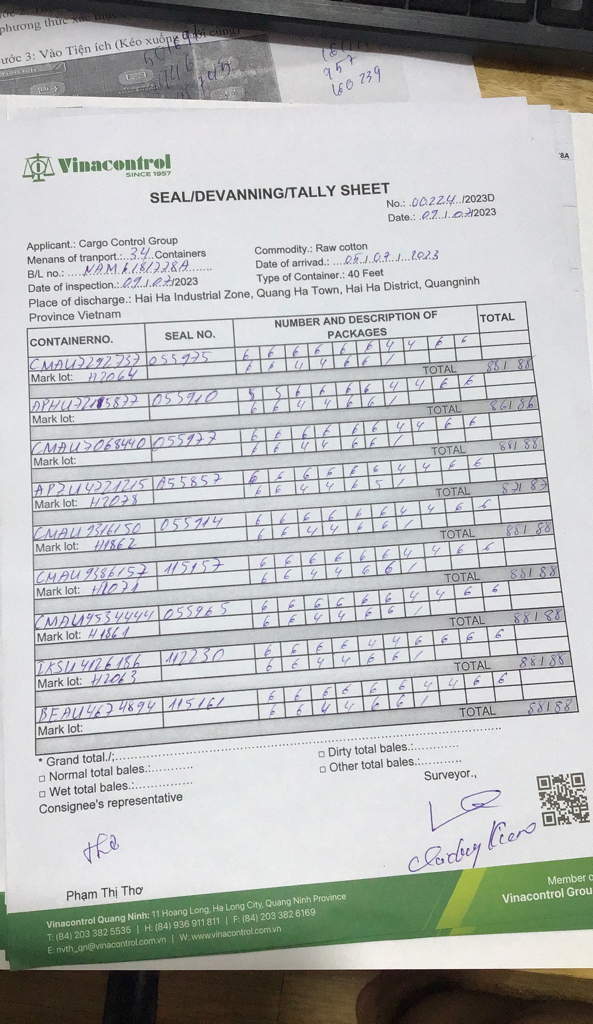 phương thức xác
ước 3: Vào Tiện ích (Kéo xuống
957
160 239
Vinacontrol
SINCE 1957
SEAL/DEVANNING/TALLY SHEET
No.: 00224/2023D
Date.: 07/07/2023
Applicant.: Cargo Control Group
Menans of tranport.: 34 Containers
Commodity.: Raw cotton
B/L no.: NAM6181228A
Date of arrivad.: 05/07/2023
Date of inspection.: 07/07/2023
Type of Container.: 40 Feet
Place of discharge.: Hai Ha Industrial Zone, Quang Ha Town, Hai Ha District, Quangninh
Province Vietnam
CONTAINERNO. SEAL NO. NUMBER AND DESCRIPTION OF PACKAGES TOTAL
CMAU7292757 055975 6 6 6 6 6 6 4 4 6 6
6 6 4 4 6 6 /
Mark lot: H2064 TOTAL 88/88
055910 5 5 6 6 6 6 4 4 6 6
6 6 4 4 6 6 /
Mark lot: TOTAL 86/86
CMAU7068440 055977 6 6 6 6 6 6 4 4 6 6
6 6 4 4 6 6 /
Mark lot: TOTAL 88/88
APZU4721215 055857 6 6 6 6 6 6 4 4 6 6
6 6 4 4 6 5 /
Mark lot: H2078 TOTAL 87/87
CMAU9316150 055914 6 6 6 6 6 6 4 4 6 6
6 6 4 4 6 6 /
Mark lot: H1862 TOTAL 88/88
CMAU9386157 115157 6 6 6 6 6 6 4 4 6 6
6 6 4 4 6 6 /
Mark lot: H2071 TOTAL 88/88
CMAU4534444 055965 6 6 6 6 6 6 4 4 6 6
6 6 4 4 6 6 /
Mark lot: H1861 TOTAL 88/88
112230 6 6 6 6 4 4 6 6 6 6
6 6 4 4 6 6 /
Mark lot: H2063 TOTAL 88/88
BEAU4674894 115161 6 6 6 6 6 6 4 4 6 6
6 6 4 4 6 6 /
Mark lot: TOTAL 88/88
* Grand total./:
□ Normal total bales.:
□ Dirty total bales.:
□ Wet total bales.:
□ Other total bales.:
Consignee's representative
Surveyor.,
Thơ
Phạm Thị Thơ
Vinacontrol Quang Ninh: 11 Hoang Long, Ha Long City, Quang Ninh Province
T: (84) 203 382 5535 | H: (84) 936 911 811 | F: (84) 203 382 6169
E: nvth_qn@vinacontrol.com.vn | W: www.vinacontrol.com.vn
Member o
Vinacontrol Grou